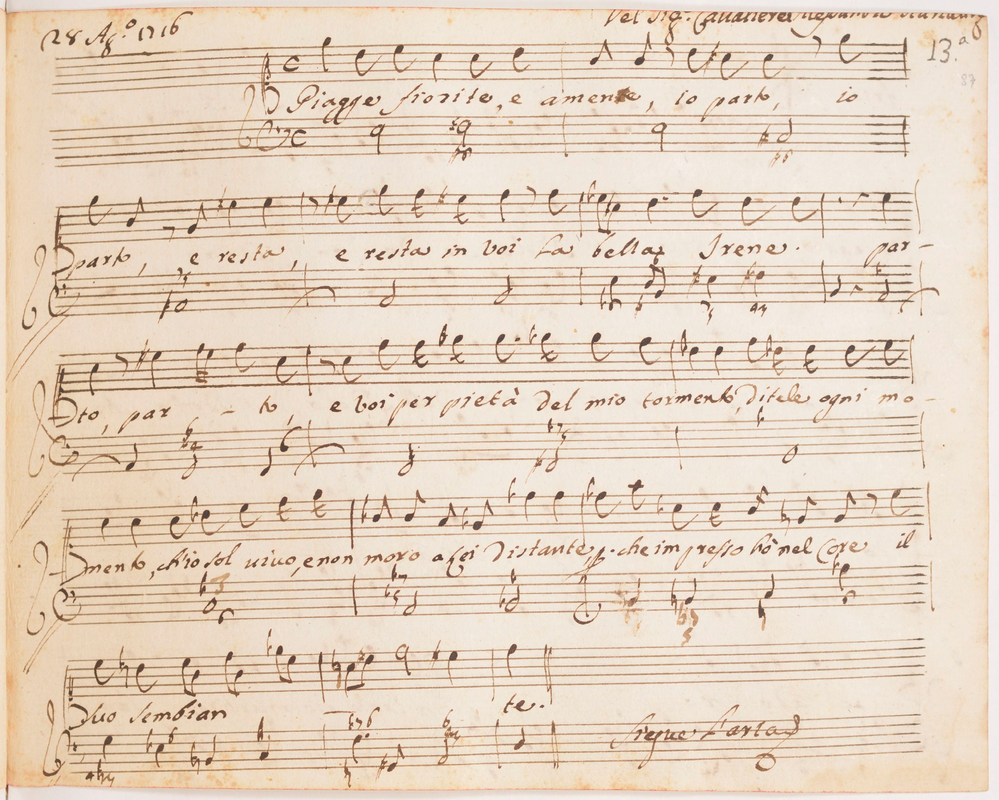 28 Ag.º 1716
Del Sig: Cavaliere Alessandro Scarlatti
13.ª
87
Piagge fiorite, e amene, io parto, io
parto, e resta, e resta in voi la bella Irene. par-
to, par - to, e voi per pietà del mio tormento, ditele ogni mo-
mento, ch'io sol vivo, e non moro a lei distante, p. che impresso hò nel core il
suo sembian te.
Segue l'aria